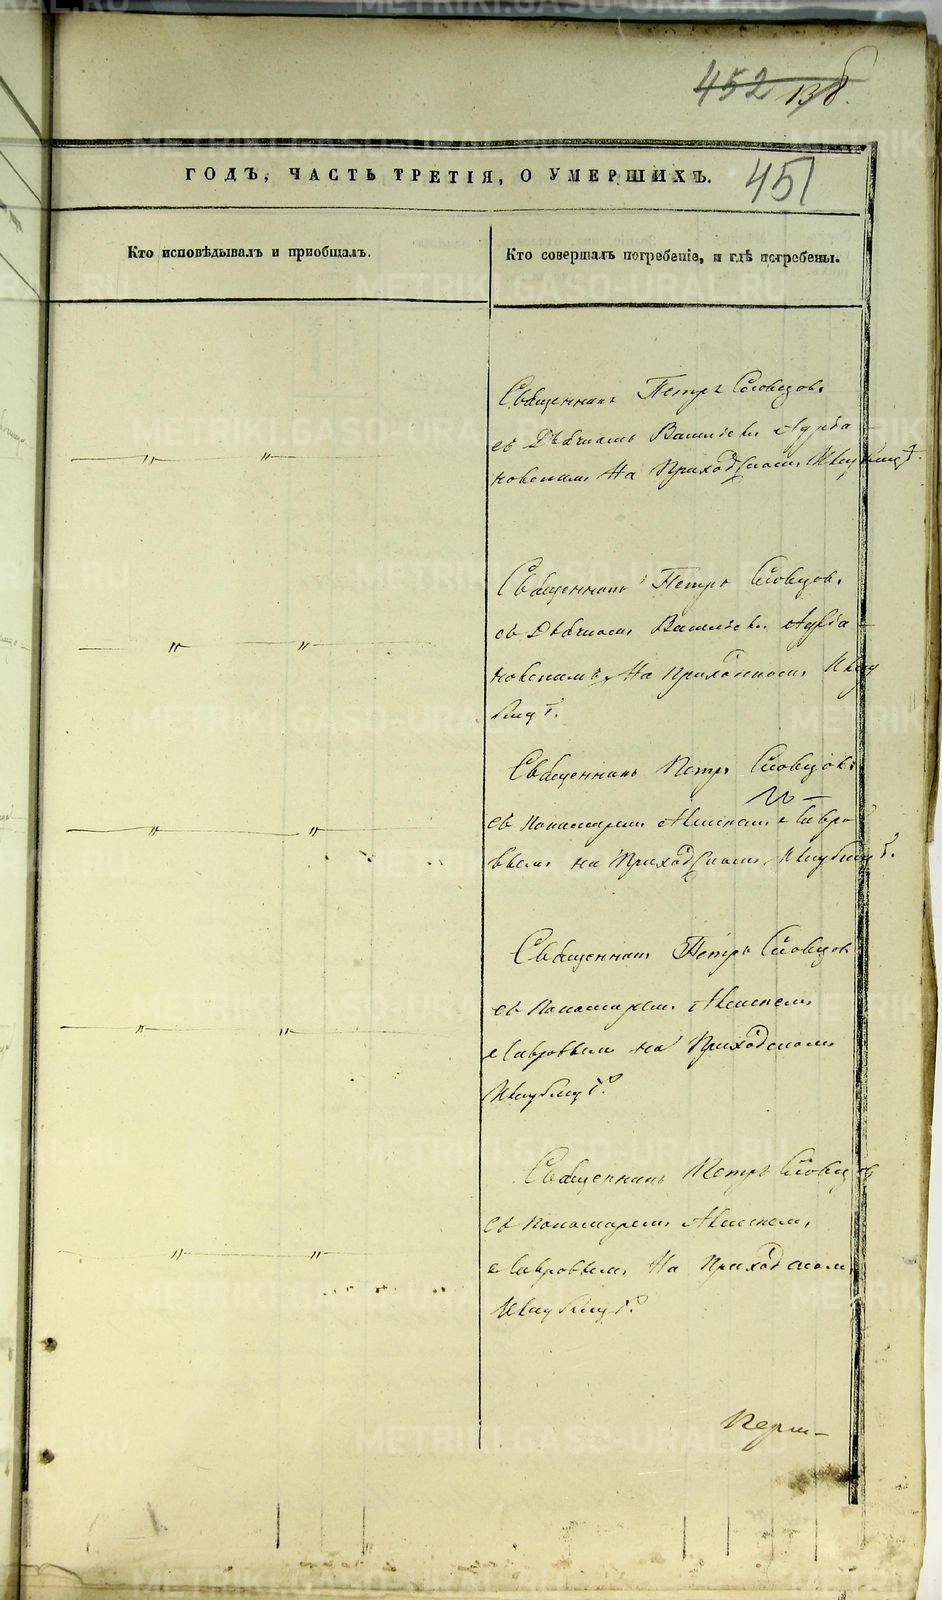 452 138.
451
ГОДЪ, ЧАСТЬ ТРЕТІЯ, О УМЕРШИХЪ.
Кто исповѣдывалъ и приобщалъ.
Кто совершалъ погребеніе, и гдѣ погребены.
Священникъ Петръ Словцовъ
съ Дьячкомъ
На Приходскомъ Кладбищѣ.
Священникъ Петръ Словцовъ
съ Дьячкомъ
На приходскомъ Клад
бищѣ.
Священникъ Петръ Словцовъ
съ пономаремъ Алексѣемъ Лавро
вымъ на Приходскомъ Кладбищѣ.
Священникъ Петръ Словцовъ
съ пономаремъ Алексѣемъ
Лавровымъ на Приходскомъ
Кладбищѣ.
Священникъ Петръ Словцовъ
съ пономаремъ Алексѣемъ
Лавровымъ На Приходскомъ
Кладбищѣ.
METRIKI.GASO-URAL.RU